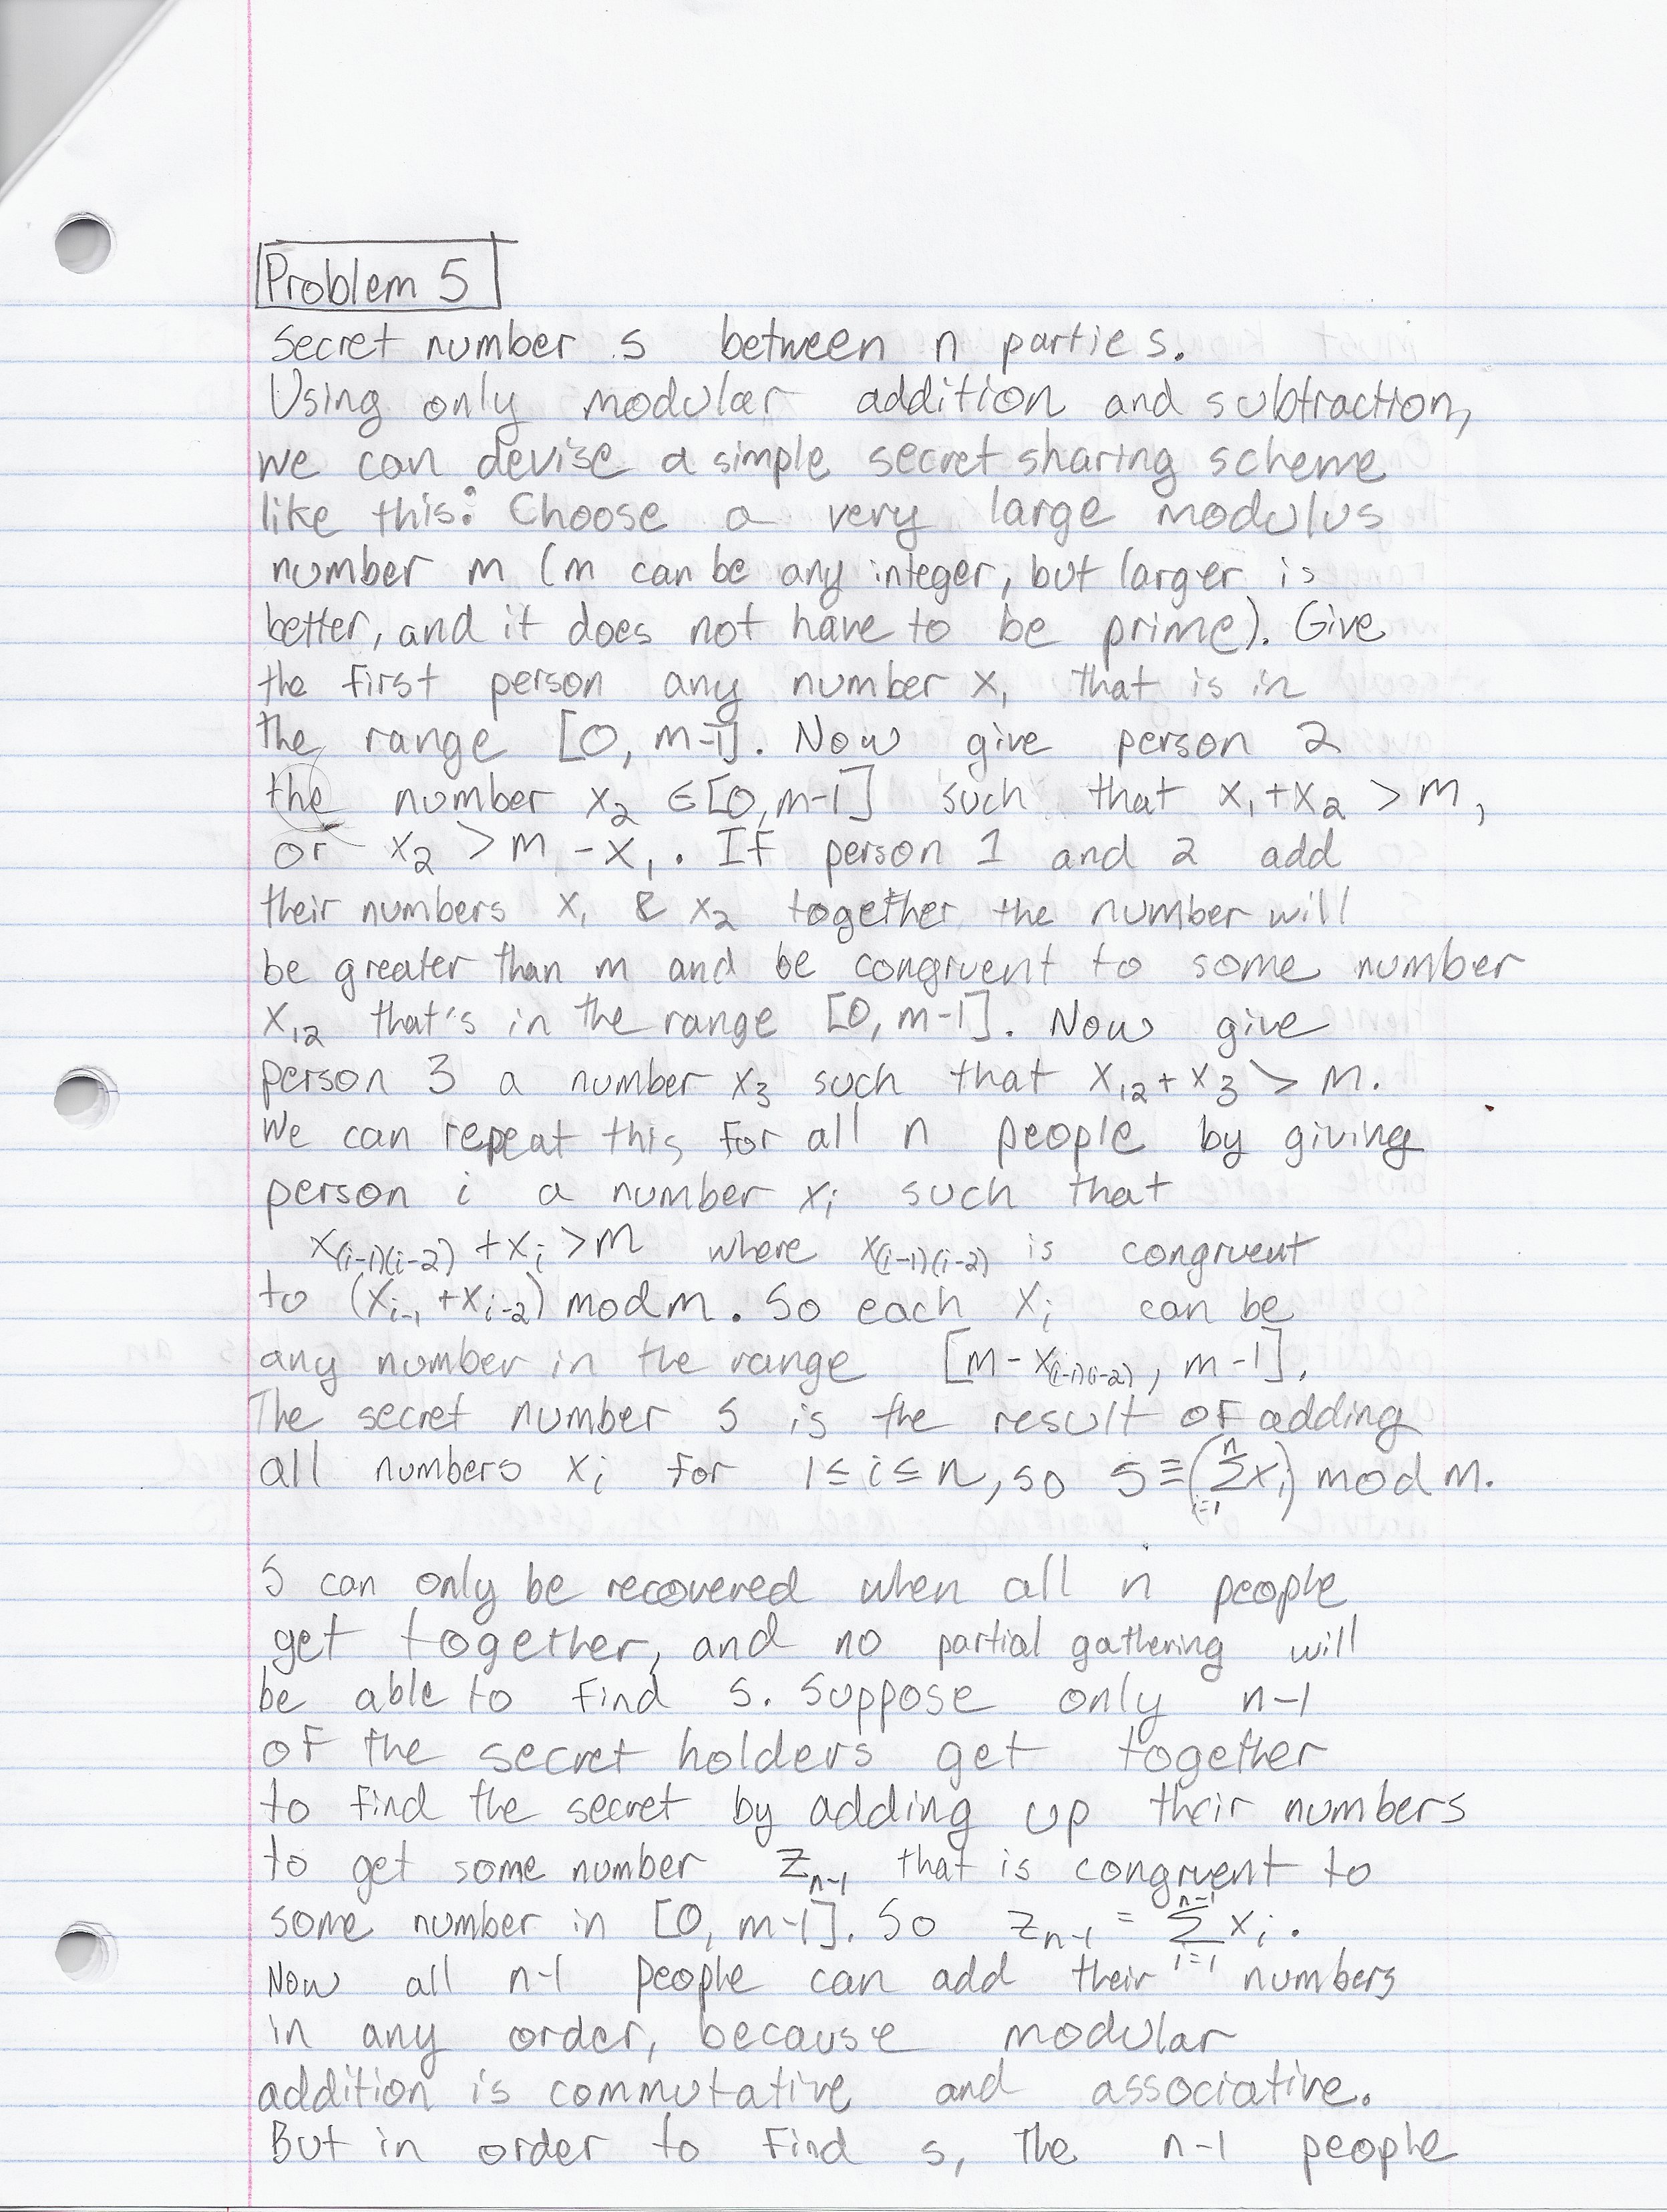 Problem 5
Secret number s between n parties.
Using only modular addition and subtraction,
we can devise a simple secret sharing scheme
like this: Choose a very large modulus
number m (m can be any integer, but larger is
better, and it does not have to be prime). Give
the first person any number x₁ that is in
the range [0, m-1]. Now give person 2
the number x₂ ∈ [0, m-1] such that x₁+x₂ > m,
or x₂ > m - x₁. If person 1 and 2 add
their numbers x₁ & x₂ together the number will
be greater than m and be congruent to some number
x₁₂ that's in the range [0, m-1]. Now give
person 3 a number x₃ such that x₁₂ + x₃ > m.
We can repeat this for all n people by giving
person i a number xᵢ such that
x₍ᵢ₋₁₎₍ᵢ₋₂₎ + xᵢ > m where x₍ᵢ₋₁₎₍ᵢ₋₂₎ is congruent
to (xᵢ₋₁ + xᵢ₋₂) mod m. So each xᵢ can be
any number in the range [m - x₍ᵢ₋₁₎₍ᵢ₋₂₎, m-1].
The secret number s is the result of adding
all numbers xᵢ for 1 ≤ i ≤ n, so s ≡ (∑ᵢ₌₁ⁿ xᵢ) mod m.
S can only be recovered when all n people
get together, and no partial gathering will
be able to find s. Suppose only n-1
of the secret holders get together
to find the secret by adding up their numbers
to get some number zₙ₋₁ that is congruent to
some number in [0, m-1]. So zₙ₋₁ = ∑ᵢ₌₁ⁿ⁻¹ xᵢ.
Now all n-1 people can add their numbers
in any order, because modular
addition is commutative and associative.
But in order to find s, the n-1 people